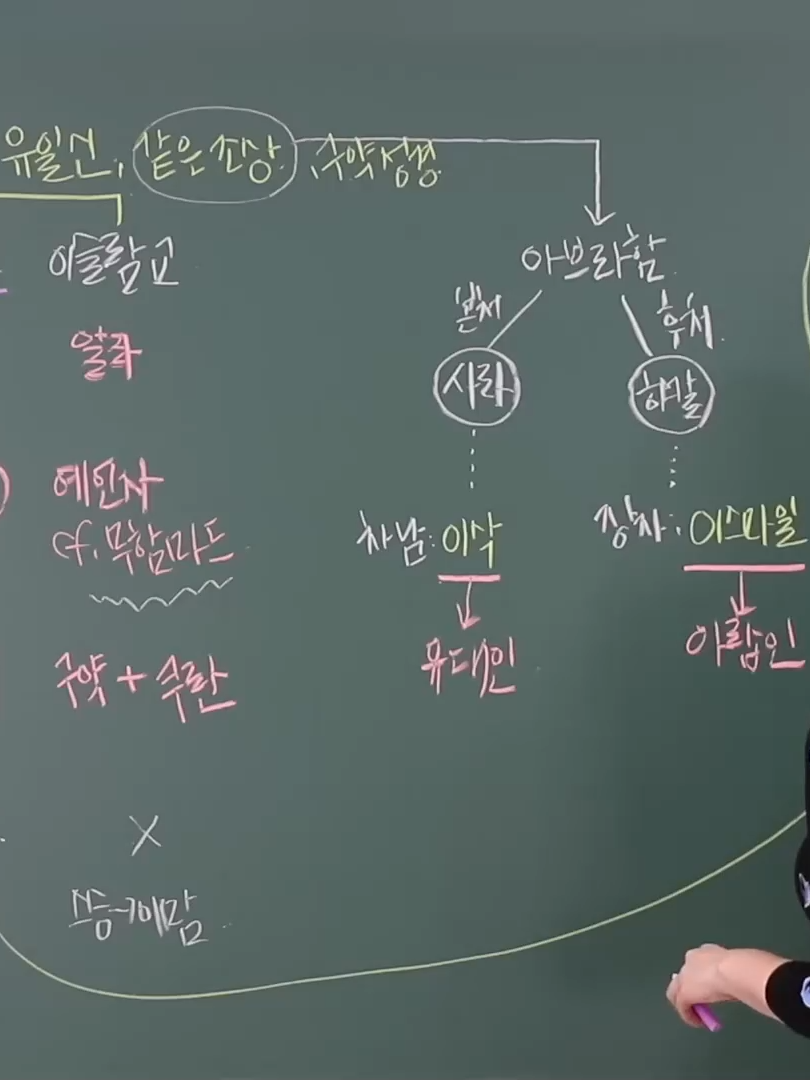 유일신, 같은 조상, 구약성경
아브라함
본처
후처
사라
하갈
이슬람교
알라
예언자
cf. 무함마드
구약 + 쿠란
X
승→개맘
차남: 이삭
유대인
장자: 이스마일
아랍인